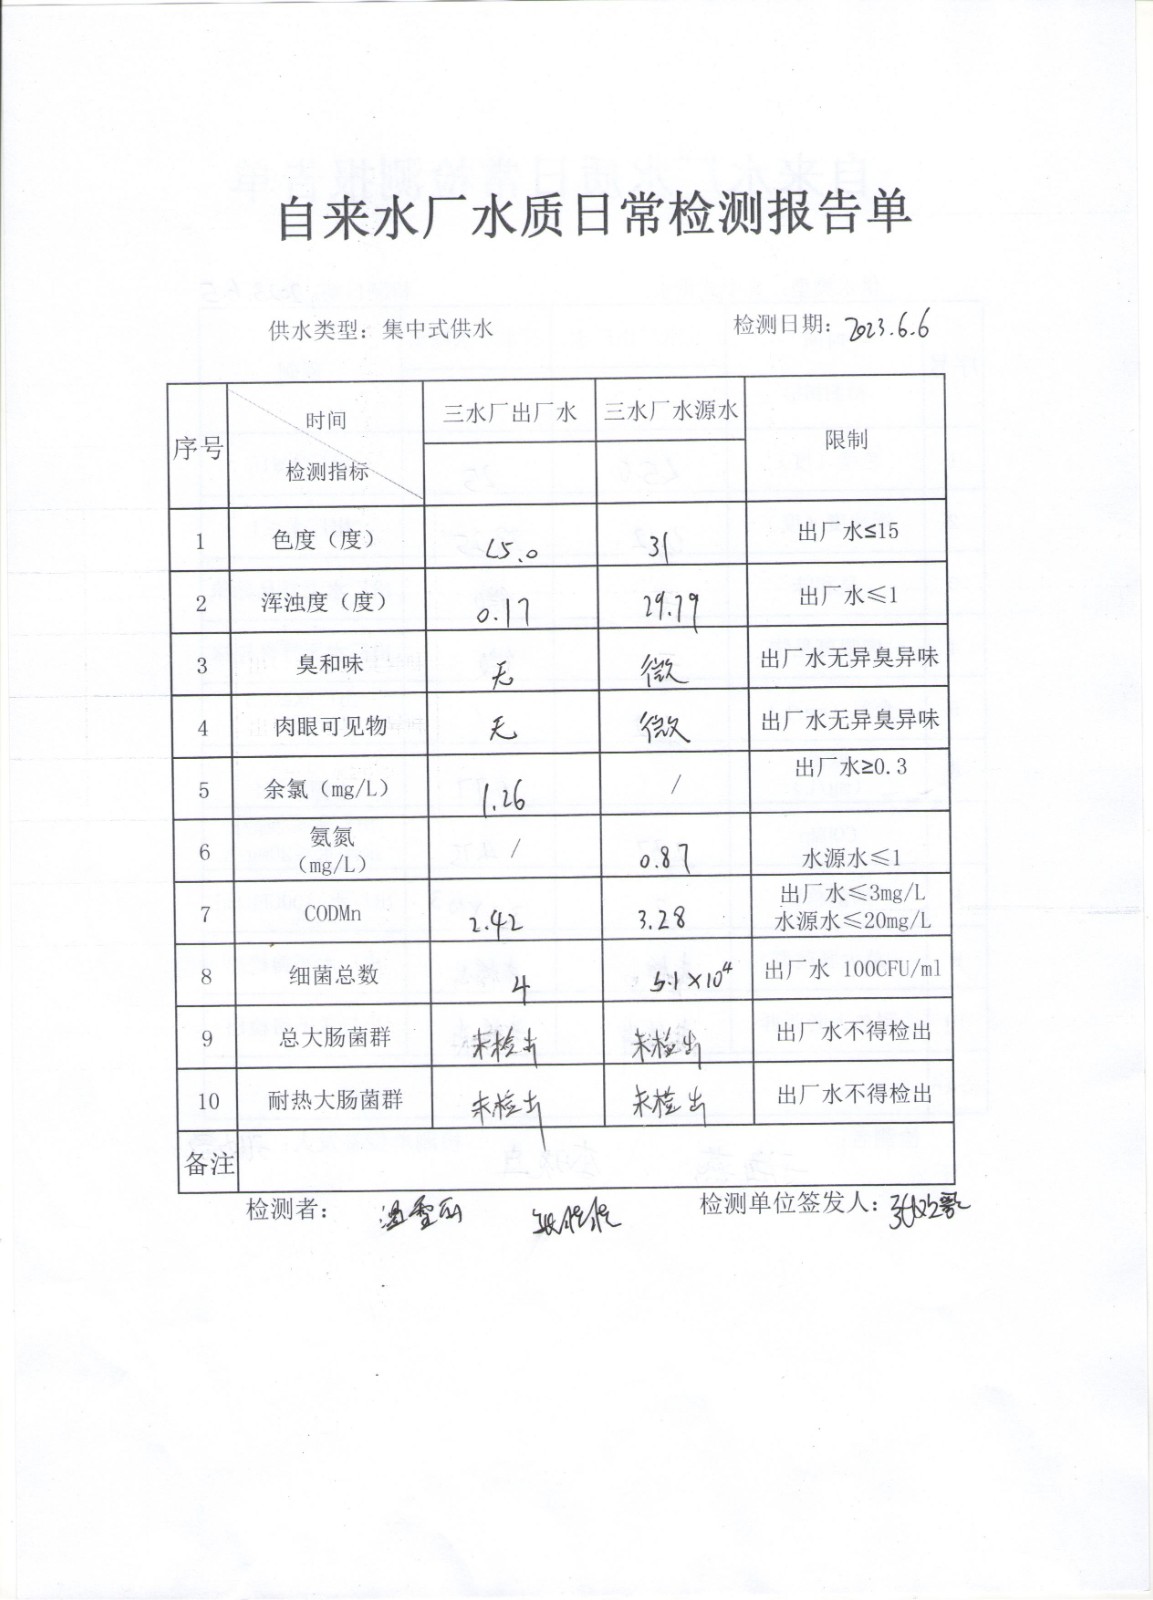 自来水厂水质日常检测报告单
供水类型：集中式供水 检测日期：2023.6.6
序号 时间 检测指标 三水厂出厂水 三水厂水源水 限制
1 色度（度） <5.0 31 出厂水≤15
2 浑浊度（度） 0.17 29.79 出厂水≤1
3 臭和味 无 微 出厂水无异臭异味
4 肉眼可见物 无 微 出厂水无异臭异味
5 余氯（mg/L） 1.26 / 出厂水≥0.3
6 氨氮（mg/L） / 0.87 水源水≤1
7 CODMn 2.42 3.28 出厂水≤3mg/L 水源水≤20mg/L
8 细菌总数 4 5.1×10⁴ 出厂水 100CFU/ml
9 总大肠菌群 未检出 未检出 出厂水不得检出
10 耐热大肠菌群 未检出 未检出 出厂水不得检出
备注
检测者： 检测单位签发人：